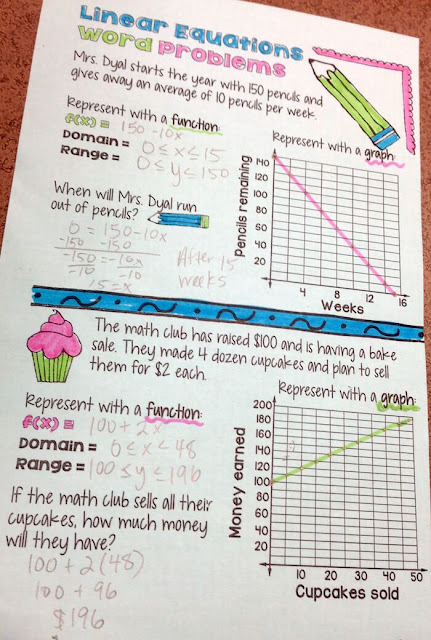 Linear Equations
word problems
Mrs. Dyal starts the year with 150 pencils and
gives away an average of 10 pencils per week.
Represent with a function:
f(x) = 150-10x
Domain = 0 ≤ x ≤ 15
Range = 0 ≤ y ≤ 150
When will Mrs. Dyal run
out of pencils?
0 = 150-10x
-150 -150
-150 = -10x
-10 -10
15=x
After 15
weeks
Represent with a graph:
Pencils remaining
140
120
100
80
60
40
20
4 8 12 16
Weeks
The math club has raised $100 and is having a bake
sale. They made 4 dozen cupcakes and plan to sell
them for $2 each.
Represent with a function:
f(x) = 100+2x
Domain = 0 ≤ x ≤ 48
Range = 100 ≤ y ≤ 196
If the math club sells all their
cupcakes, how much money
will they have?
100 + 2(48)
100 + 96
$196
Represent with a graph:
Money earned
200
180
160
140
120
100
80
60
40
20
10 20 30 40 50
Cupcakes sold